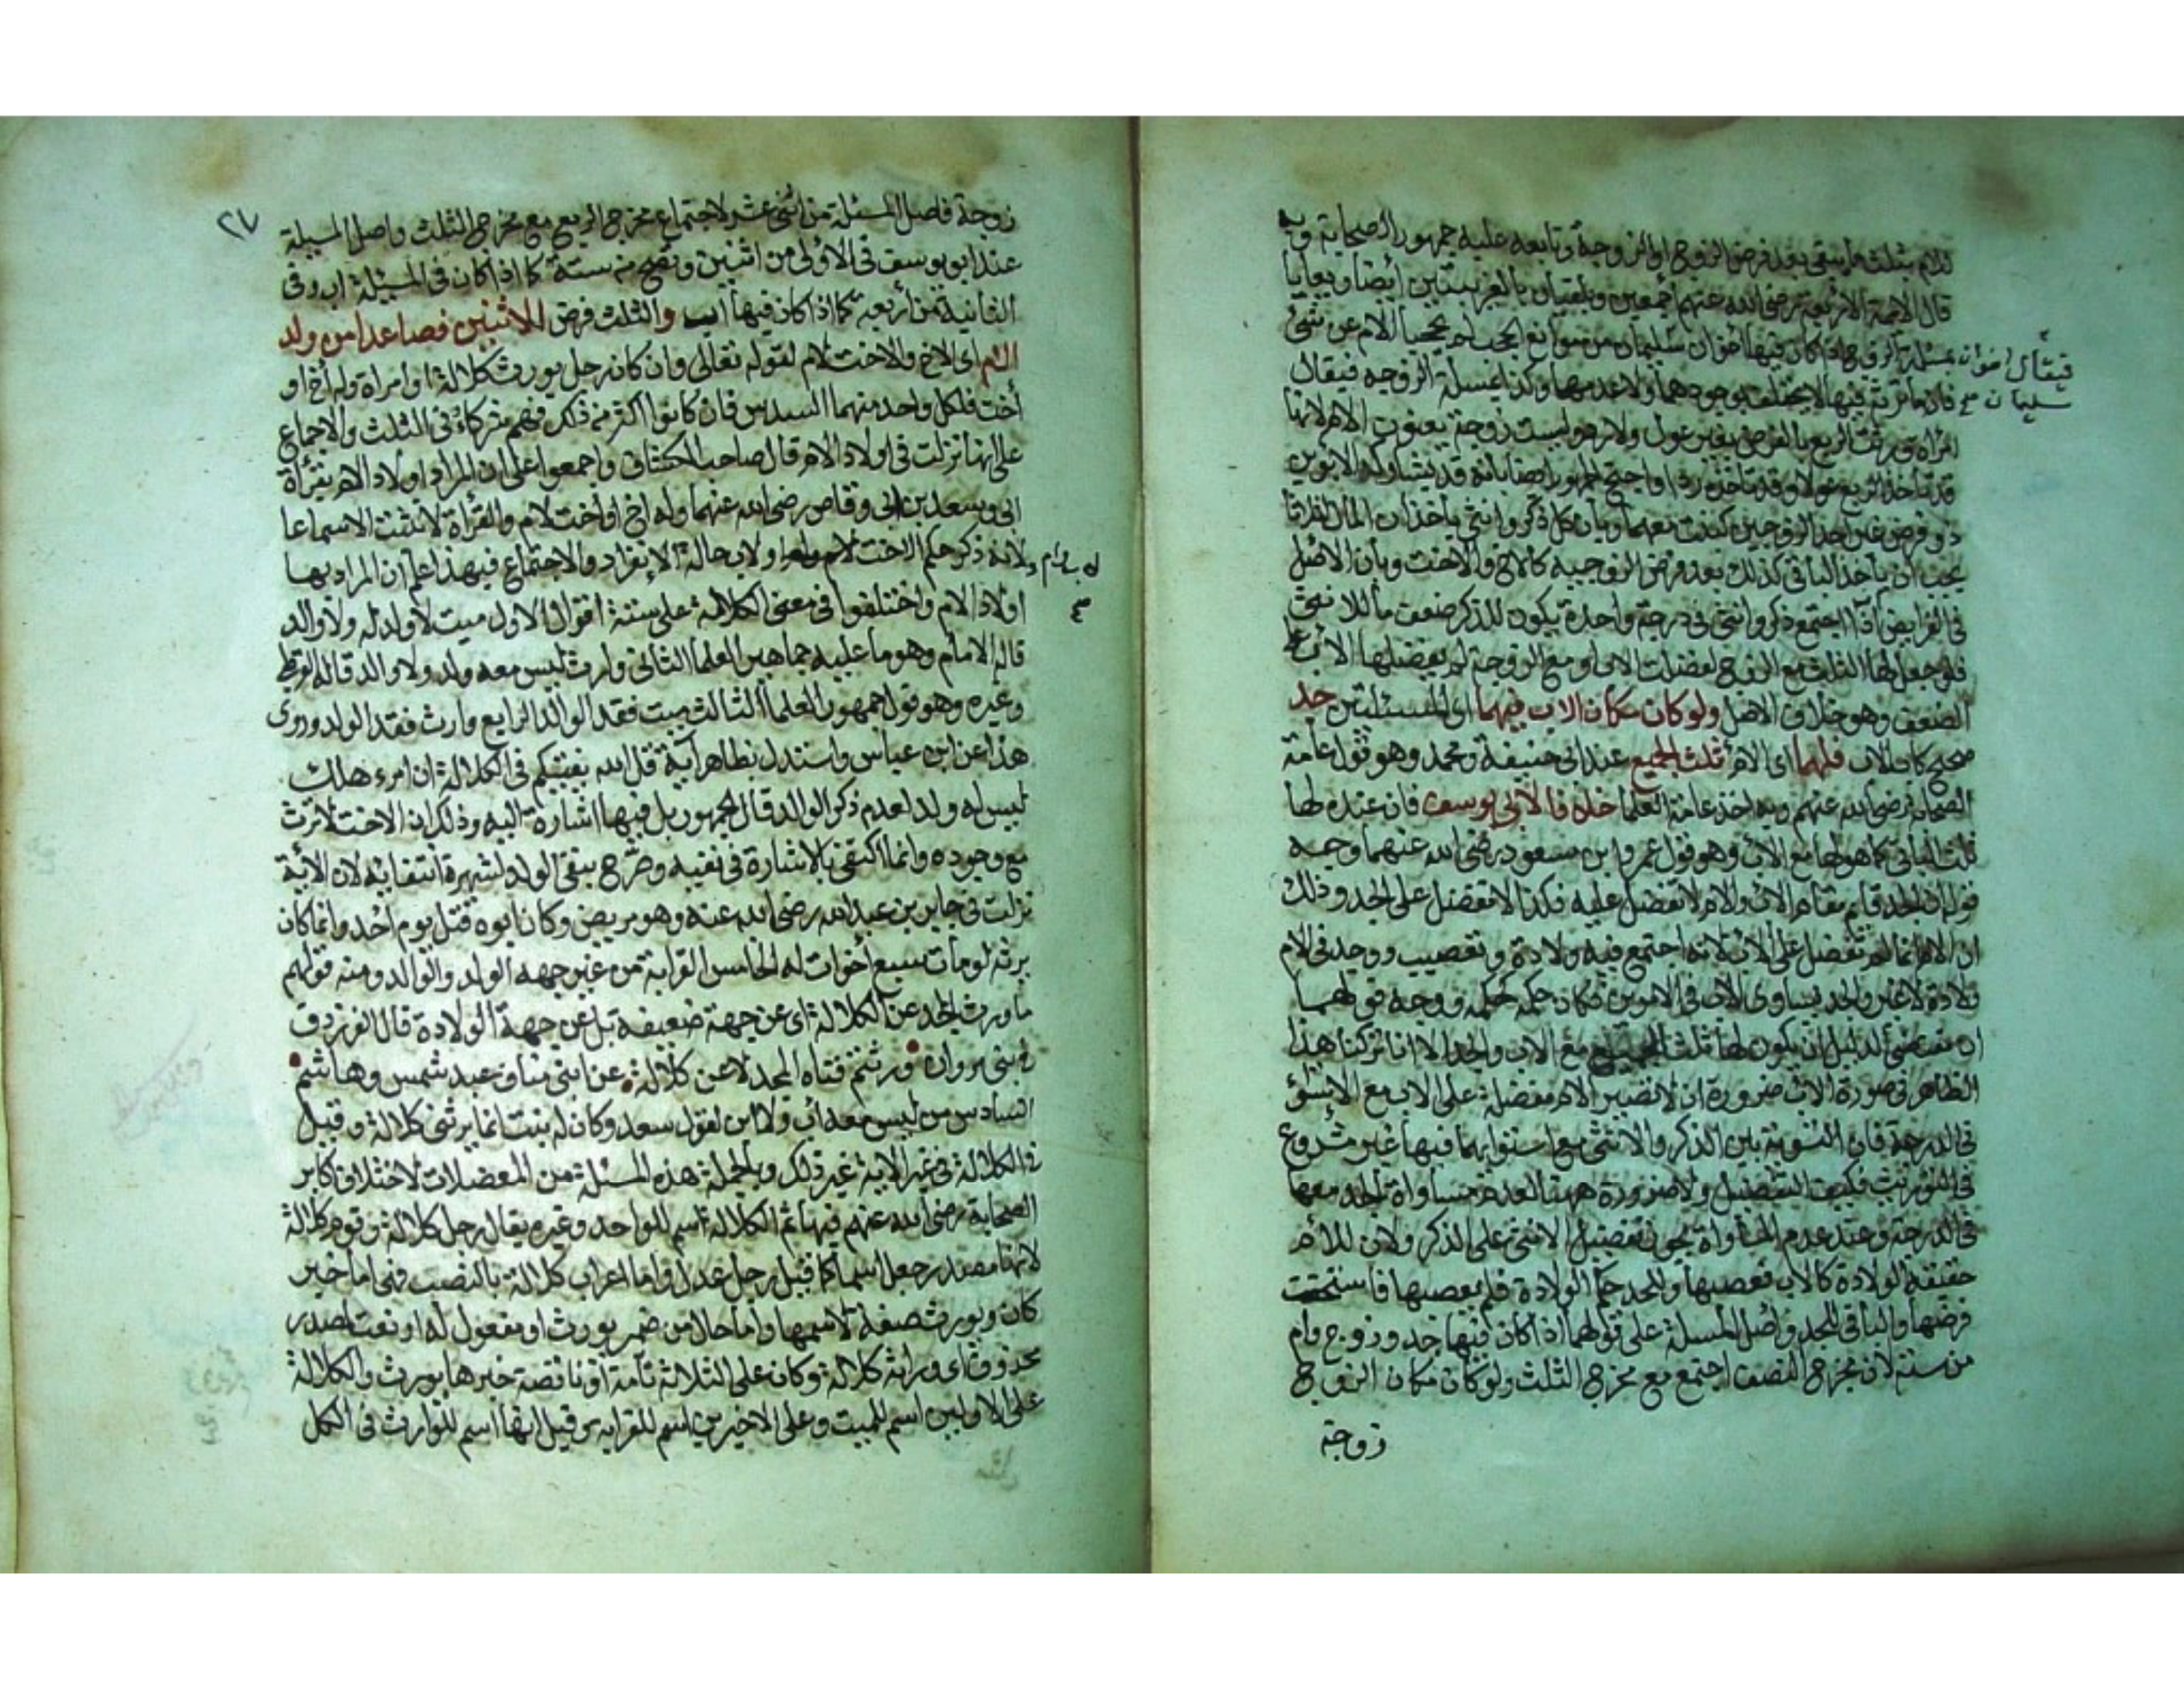 للام بثلث ما يبقى بعد فرض الزوج او الزوجة وتابعه عليه جمهور الصحابة وبه
قال الايمة الاربعة رضي الله عنهم اجمعين ويلقبان بالغريبتين ايضا ويعايا
فيقال اخوان
سليمان صح
بمسئلة الزوج اذا كان فيها اخوان سليمان من موانع الحجب لم يحجبا الام عن شئ
فان ما ترثه فيها لا يختلف بوجودهما ولا عدمهما وكذا بمسئلة الزوجه فيقال
امراة ورثت الربع بالفرض بغير عول ولا رد وليست زوجة يعنون الام لانها
قد تاخذ الربع عولا وقد تاخذه ردا واحتج الجمهور ايضا بانه قد يشارك الابوين
ذو فرض غير احد الزوجين كبنت معهما وبان كل ذكر وانثى ياخذان المال اثلاثا
يجب ان ياخذ الباقي كذلك بعد فرض الزوجيه كالاخ والاخت وبان الاصل
في الفرايض اذا اجتمع ذكر وانثى في درجة واحدة يكون للذكر ضعف ما للانثى
فلو جعل لها الثلث مع الزوج لفضلت الاب او مع الزوجة لم يفضلها الاب
الضعف وهو خلاف الاصل ولو كان مكان الاب فيهما اي المسئلتين جد
صحيح كاب الاب فلها اي الام ثلث الجميع عند ابي حنيفة ومحمد وهو قول عامة
الصحابه رضي الله عنهم وبه اخذ عامة العلما خلافا لابي يوسف فان عنده لها
ثلث الباقي كما هو لها مع الاب وهو قول عمر وابن مسعود رضي الله عنهما وجه
قوله ان الجد قايم مقام الاب والام لا تفضل عليه فكذا لا تفضل على الجد وذلك
ان الام انما لم تفضل على الاب لانه اجتمع فيه ولادة وتعصيب ووجد في الام
ولادة لا غير والجد يساوى الاب في الامرين فكان حكمه حكمه ووجه قولهما
ان مقتضى الدليل ان يكون لها ثلث الجميع مع الاب والجد الا انا تركنا هذا
الظاهر في صورة الاب ضرورة ان لا تصير الام مفضلة على الاب مع الاستوا
في الدرجة فان التسوية بين الذكر والانثى مع استوايهما فيها غير مشروع
في التوريث فكيف التفضيل ولا ضرورة ههنا لعدم مساواة الجد معها
في الدرجة وعند عدم المساواة يجوز تفضيل الانثى على الذكر ولان للام
حقيقة الولادة كالاب فعصبها وللجد حكم الولادة فلم يعصبها فاستحقت
فرضها والباقي للجد واصل المسئلة على قولهما اذا كان فيها جد وزوج وام
من ستة لان مخرج النصف اجتمع مع مخرج الثلث ولو كان مكان الزوج
زوجة
٢٧
زوجة فاصل المسئلة من اثني عشر لاجتماع مخرج الربع مع مخرج الثلث واصل المسئلة
عند ابو يوسف في الاولى من اثنين وتصح من ستة كما اذا كان في المسئلة اب وفي
الثانية من اربعة كما اذا كان فيها اب والثلث فرض للاثنين فصاعدا من ولد
الام اي الاخ والاخت لام لقوله تعالى وان كان رجل يورث كلالة او امراة وله اخ او
اخت فلكل واحد منهما السدس فان كانوا اكثر من ذلك فهم شركاء في الثلث والاجماع
على انها نزلت في اولاد الام قال صاحب الكشاف واجمعوا على ان المراد اولاد الام بقرأة
ابي وسعد بن ابي وقاص رضي الله عنهما وله اخ او اخت لام والقرأة لا تثبت الا سماعا
ولانه ذكر حكم الاخت ولاب حالة الانفراد والاجتماع فبهذا علم ان المراد بها
اولاد الام واختلفوا في معنى الكلالة على ستة اقوال الاول ميت لا ولد له ولا والد
قاله الامام وهو ما عليه جماهير العلما الثاني وارث ليس معه ولد ولا والد قاله القرطبي
وغيره وهو قول جمهور العلما الثالث ميت فقد الوالد الرابع وارث فقد الولد وروى
هذا عن ابن عباس واستدل بظاهر آية قل الله يفتيكم في الكلالة ان امرء هلك
ليس له ولد لعدم ذكر الوالد قال الجمهور بل فيها اشارة اليه وذلك ان الاخت لا ترث
مع وجوده وانما اكتفى بالاشارة في نفيه وصرح بنفي الولد لشهرة انتفايه لان الاية
نزلت في جابر بن عبد الله رضي الله عنه وهو مريض وكان ابوه قتل يوم احد وانما كان
يرثه لو مات سبع اخوات له الخامس القرابة من غير جهه الولد والوالد ومنه قولهم
ما ورث المجد عن الكلالة اي عن جهة ضعيفة بل عن جهة الولادة قال الفرزدق
ورثتم قناه المجد لا عن كلالة عن ابني مناف عبد شمس وهاشم
السادس من ليس معه اب ولا ابن لقول سعد وكان له بنت انما يرثني كلالة وقيل
في الكلالة في غير الاية غير ذلك وبالجملة هذه المسئلة من المعضلات لاختلاف اكابر
الصحابة رضي الله عنهم فيها ثم الكلالة اسم للواحد وغيره يقال رجل كلالة وقوم كلالة
لانها مصدر جعل اسما كما قيل رجل عدل واما اعراب كلالة بالنصب فهي اما خبر
كان ويورث صفة لاسمها واما حال من ضمير يورث او مفعول له او نعت لمصدر
محذوف اي وراثة كلالة وكان على الثلاثة تامة او ناقصة خبرها يورث والكلالة
على الاولين اسم للميت وعلى الاخيرين اسم للقرابه وقيل انها اسم للوارث في الكل